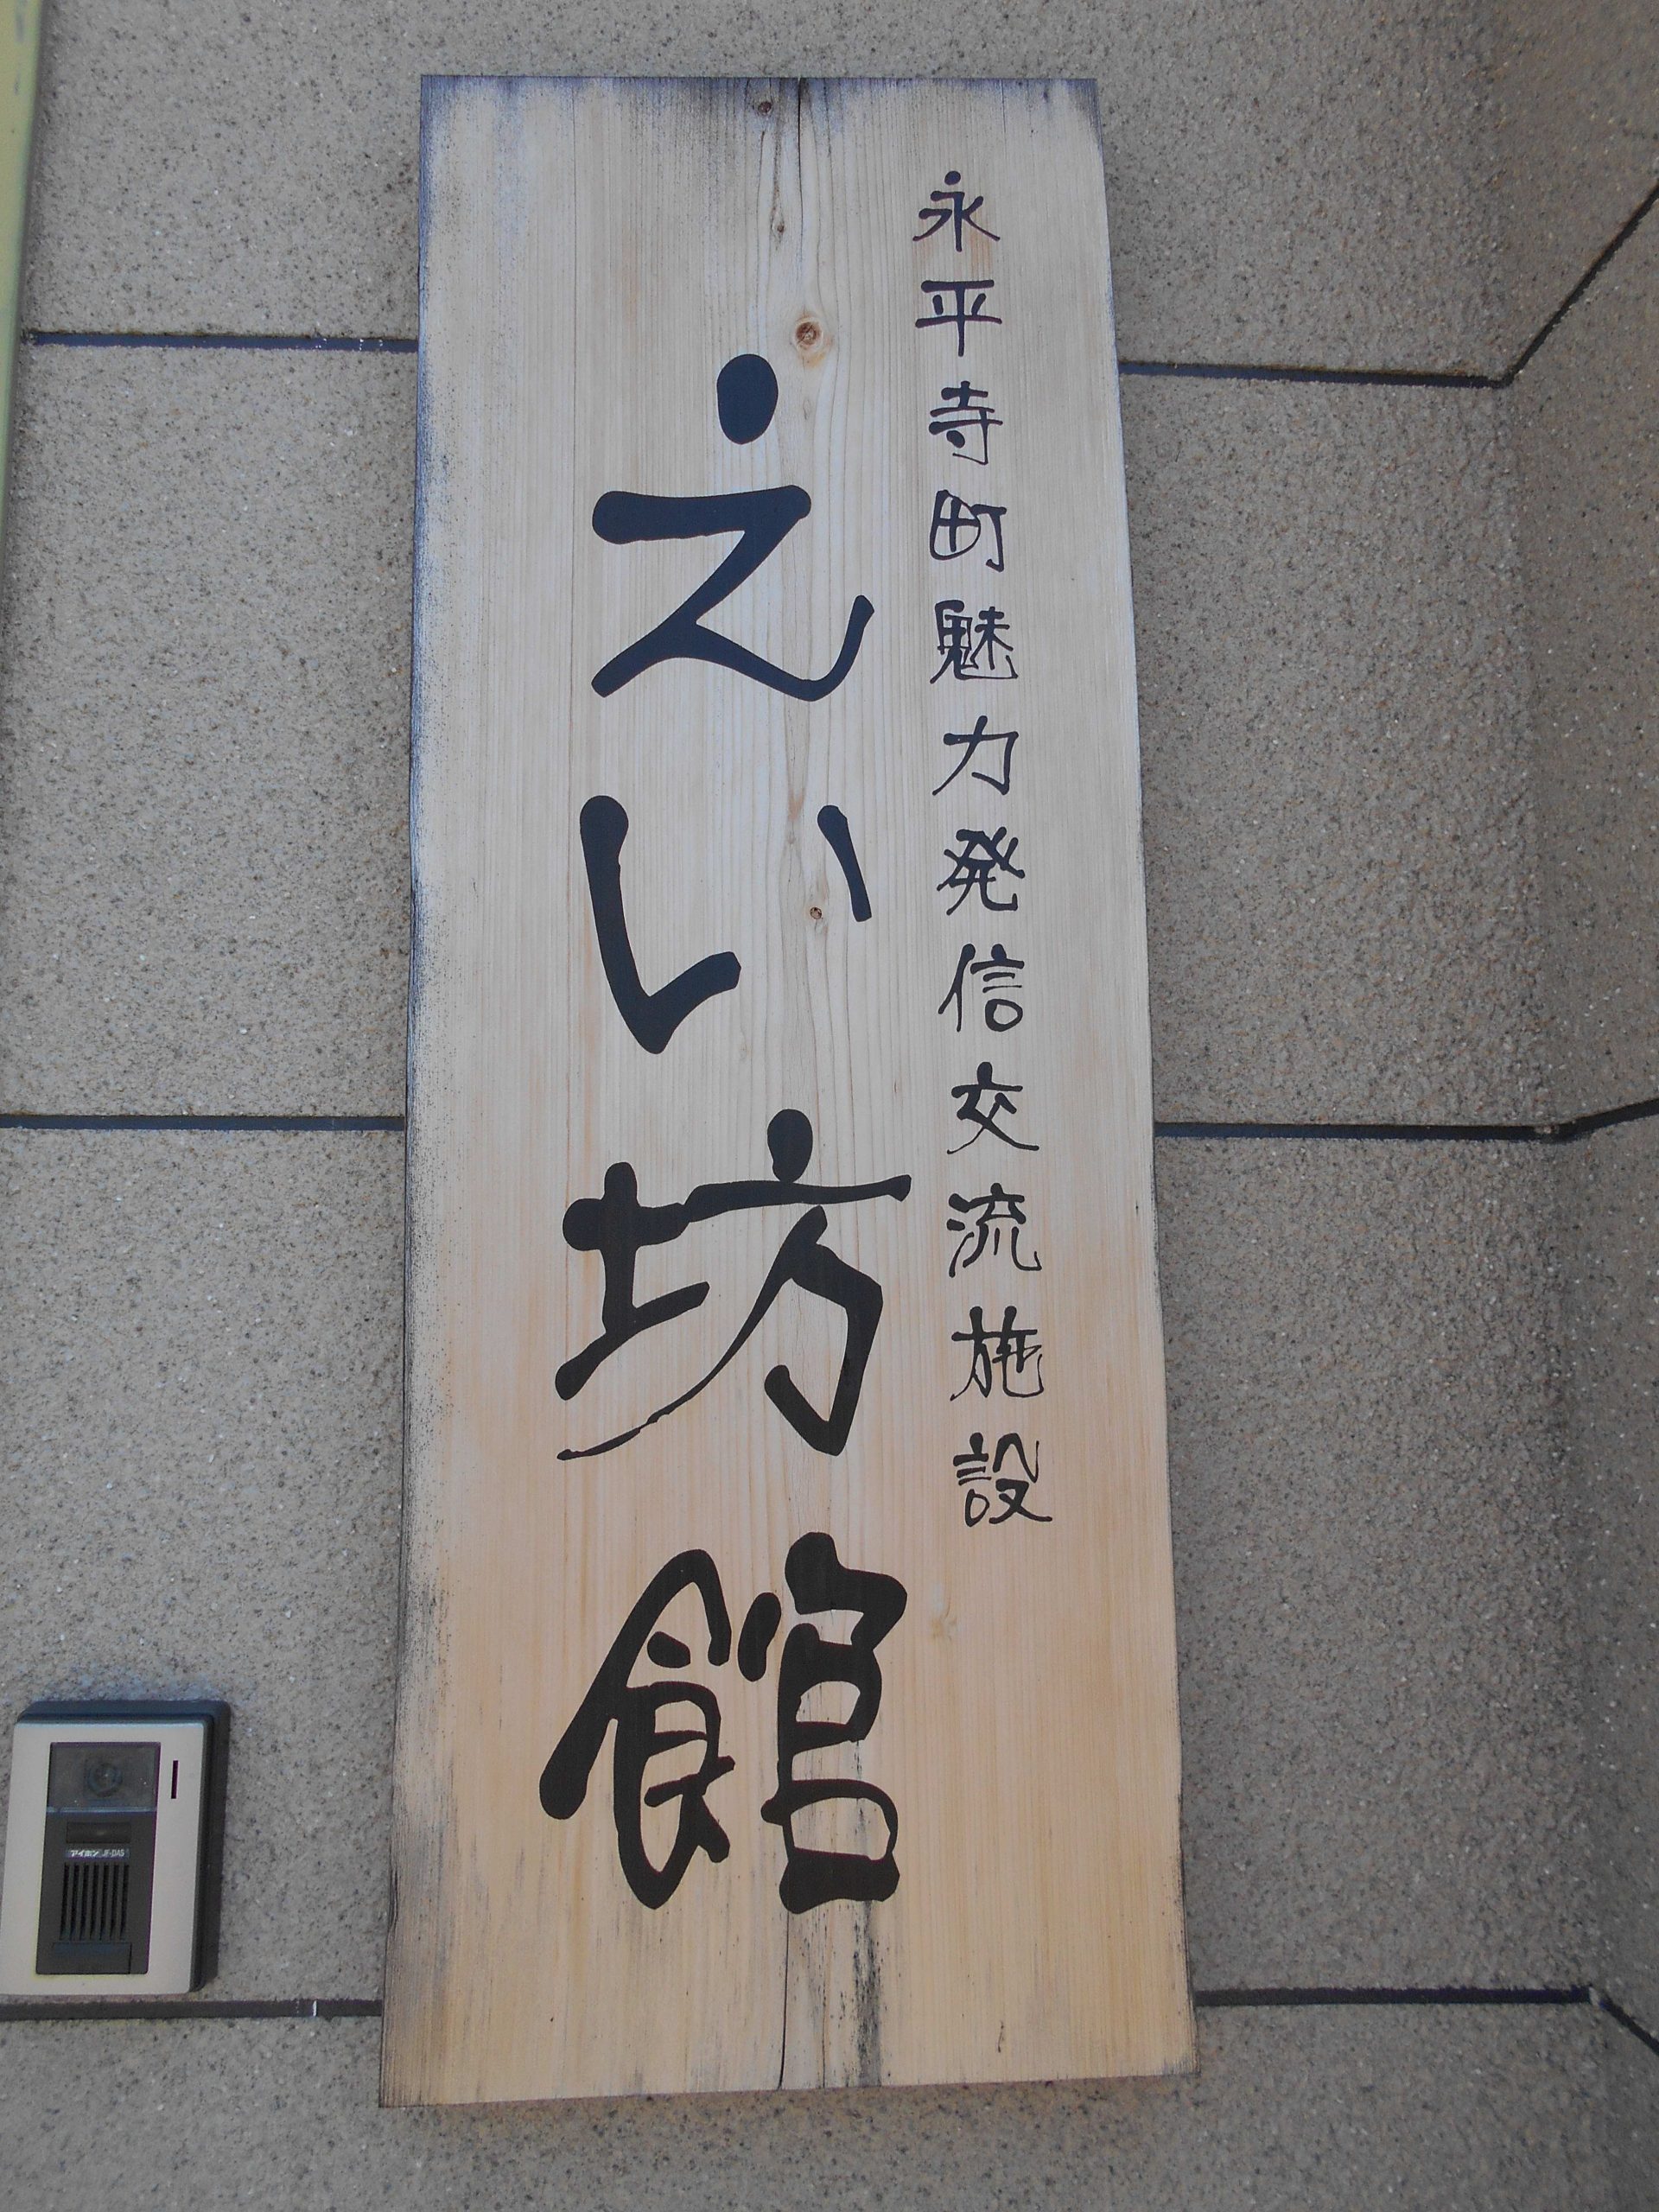 永平寺町魅力発信交流施設
えい坊館
アイホン JF-DAS